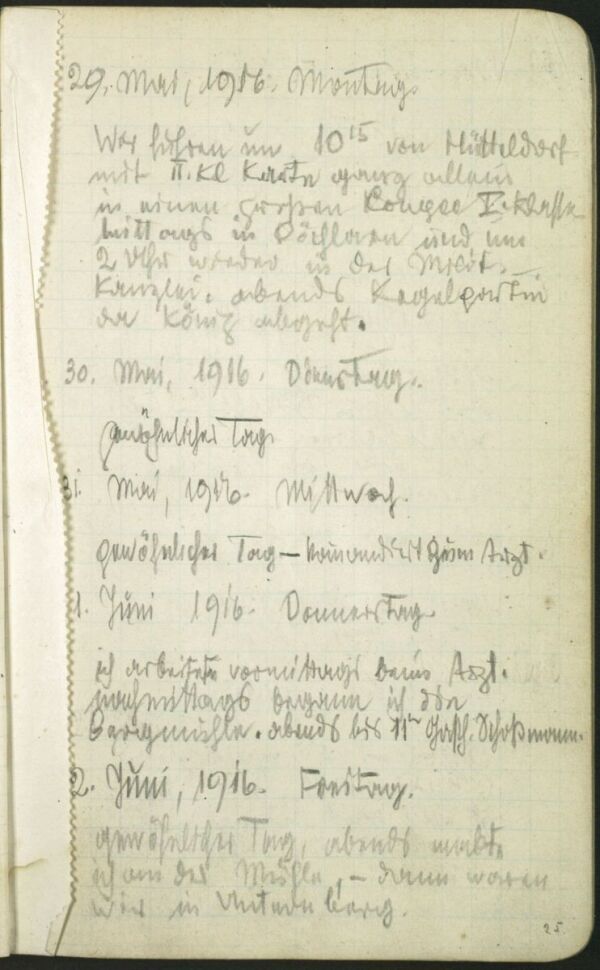 29. Mai, 1916. Montag.
Wir fuhren um 10 15 von Hütteldorf
mit II. Kl Karte ganz allein
in einen großen Koupee V. Klasse
mittags in Pöchlarn und um
2 Uhr wieder in der Milit.-
Kanzlei. abends Kegelpartie
da König abgeht.
30. Mai, 1916. Dienstag.
gewöhnlicher Tag.
31. Mai, 1916. Mittwoch.
gewöhnlicher Tag – komandiert zum Arzt.
1. Juni 1916. Donnerstag.
ich arbeitete vormittags beim Arzt.
nachmittags begann ich die
Bergmühle. abends bis 11h Gasth. Schoßmann.
2. Juni, 1916. Freitag.
gewöhnlicher Tag, abends malte
ich an der Mühle, – dann waren
wir in Unternberg.
25.